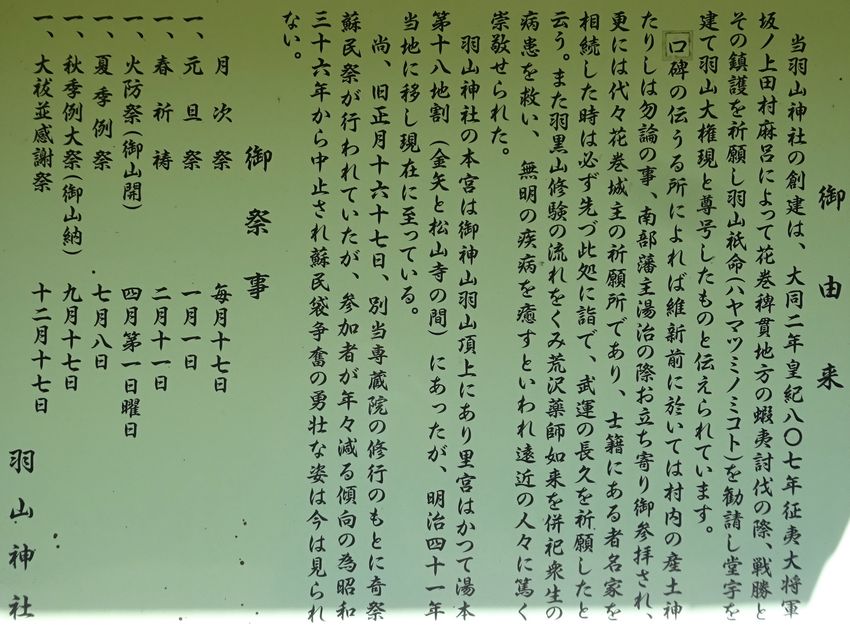 御由来
当羽山神社の創建は、大同二年皇紀八〇七年征夷大将軍
坂ノ上田村麻呂によって花巻稗貫地方の蝦夷討伐の際、戦勝と
その鎮護を祈願し羽山祇命(ハヤマツミノミコト)を勧請し堂宇を
建て羽山大権現と尊号したものと伝えられています。
口碑の伝うる所によれば維新前に於いては村内の産土神
たりしは勿論の事、南部藩主湯治の際お立ち寄り御参拝され、
更には代々花巻城主の祈願所であり、士籍にある者名家を
相続した時は必ず先づ此処に詣で、武運の長久を祈願したと
云う。また羽黒山修験の流れをくみ荒沢薬師如来を併祀衆生の
病患を救い、無明の疾病を癒すといわれ遠近の人々に篤く
崇敬せられた。
羽山神社の本宮は御神山羽山頂上にあり里宮はかつて湯本
第十八地割(金矢と松山寺の間)にあったが、明治四十一年
当地に移し現在に至っている。
尚、旧正月十六十七日、別当専蔵院の修行のもとに奇祭
蘇民祭が行われていたが、参加者が年々減る傾向の為昭和
三十六年から中止され蘇民袋争奮の勇壮な姿は今は見られ
ない。
御祭事
月次祭 毎月十七日
一、元旦祭 一月一日
一、春祈祷 二月十一日
一、火防祭(御山開) 四月第一日曜日
一、夏季例祭 七月八日
一、秋季例大祭(御山納) 九月十七日
一、大祓並感謝祭 十二月十七日
羽山神社